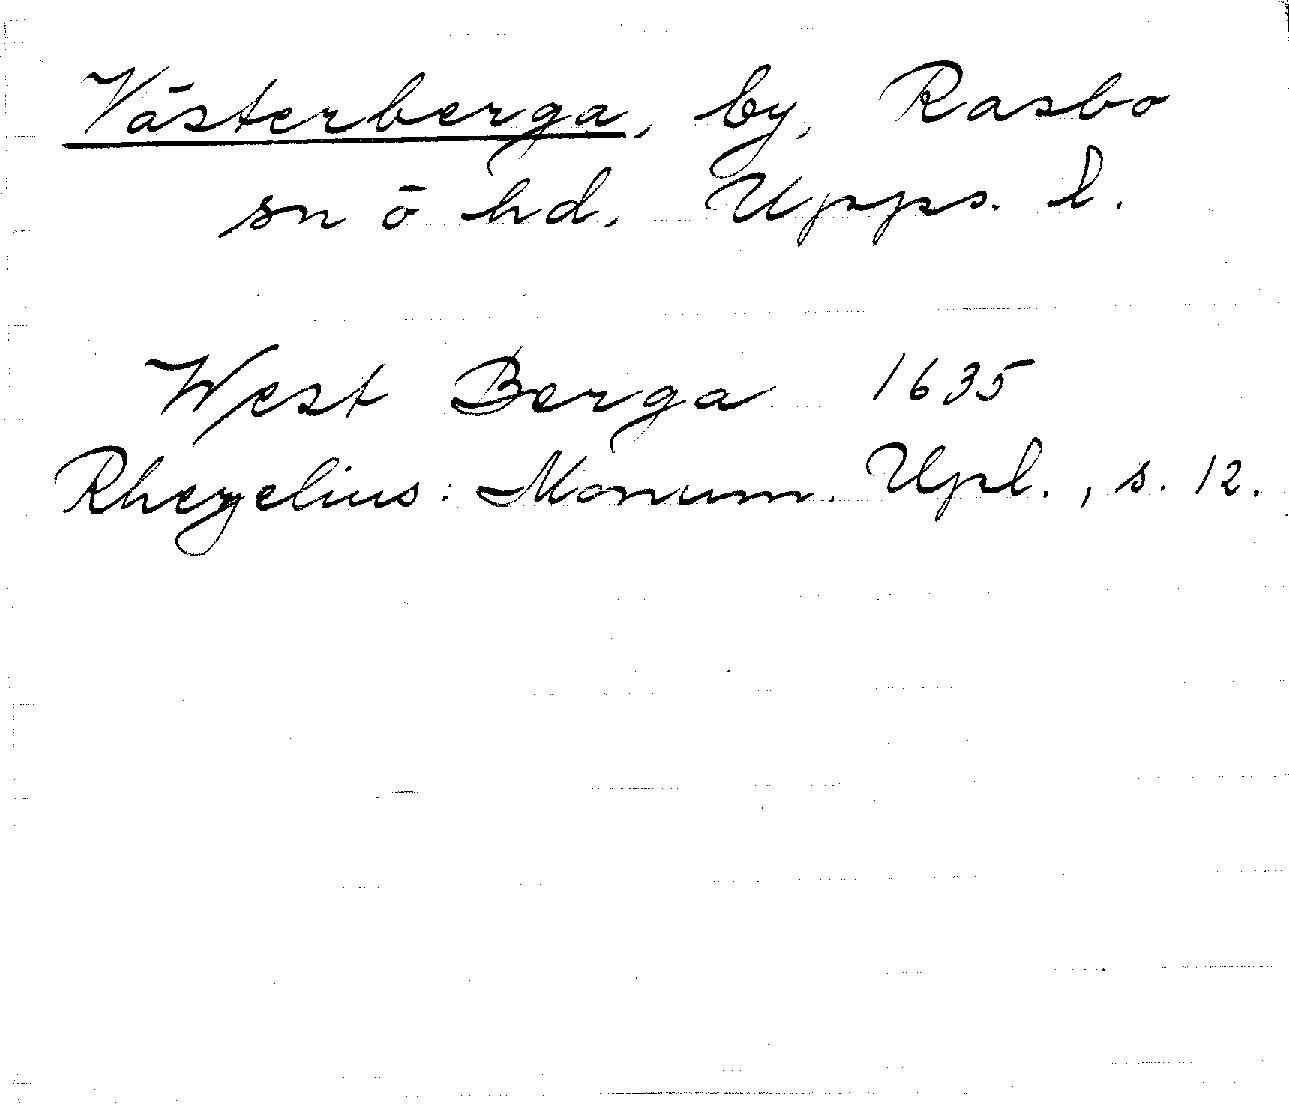 Västerberga, by, Rasbo
sn ö hd. Upps. l.
West Berga 1635
Rhezelius: Monum. Upl., s. 12.